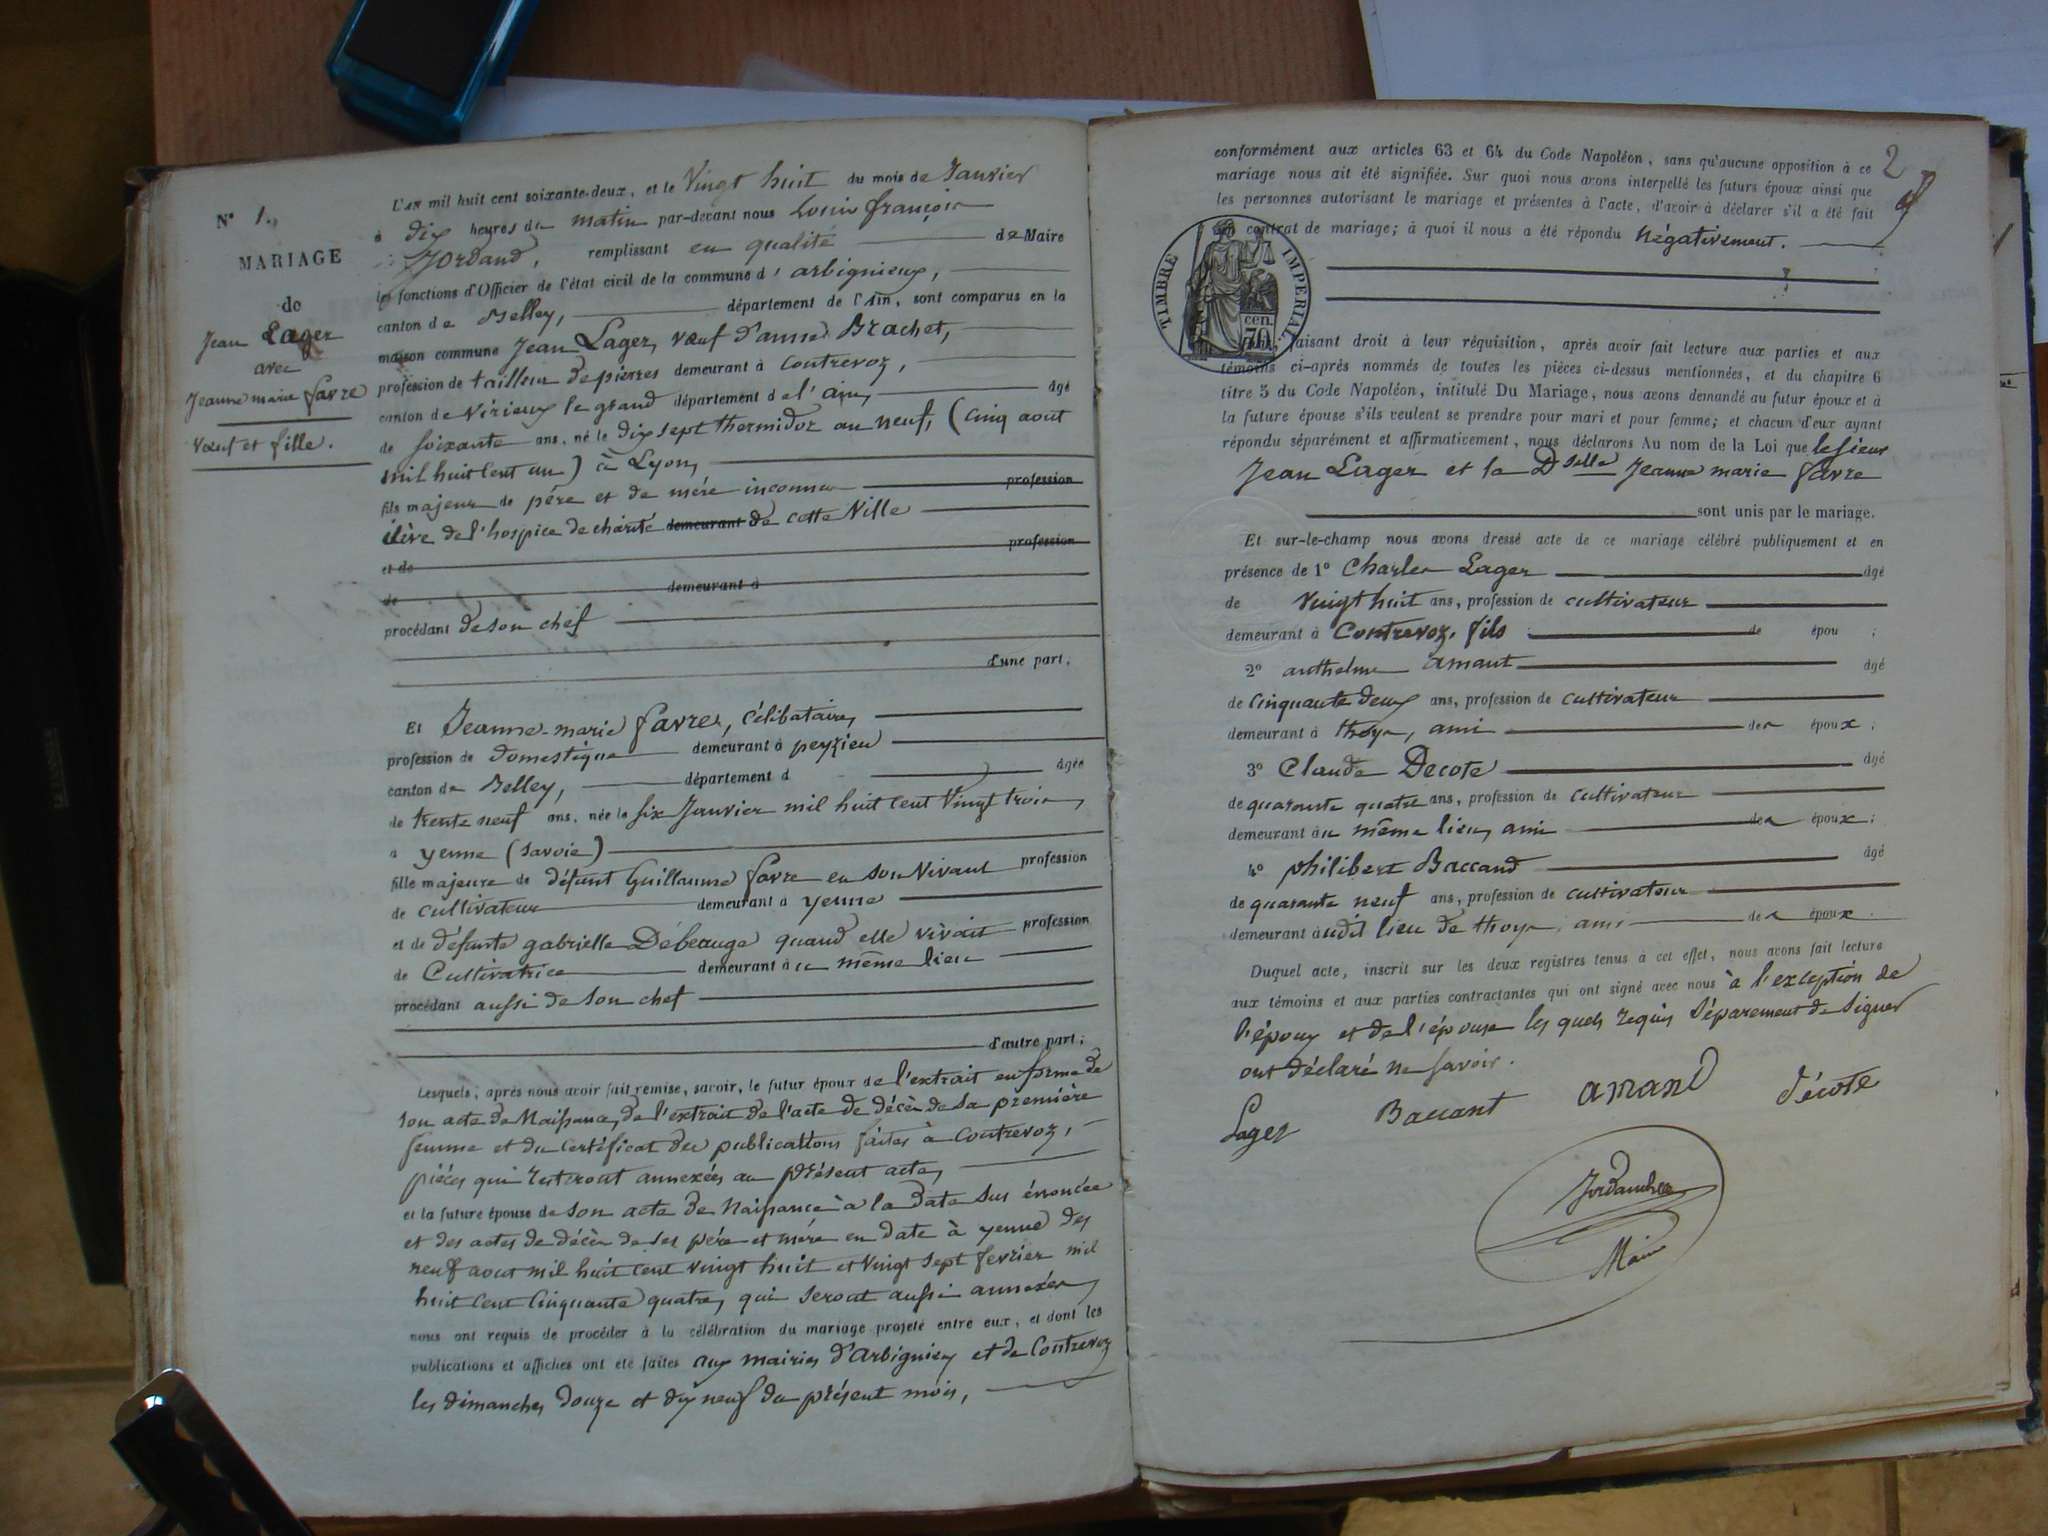 N° 1.
MARIAGE
de
Jean Lager
avec
Jeanne marie favre
Vœuf et fille.
L'AN mil huit cent soixante-deux, et le Vingt huit du mois de Janvier
à dix heures du matin par-devant nous Louis françois
Jordand, remplissant en qualité de Maire
les fonctions d'Officier de l'état civil de la commune d'arbignieux,
canton de Belley, département de l'Ain, sont comparus en la
maison commune Jean Lager, vœuf d'anne Brachet,
profession de tailleur de pierres demeurant à Contrevoz,
canton de Virieux le grand département de l'ain, âgé
de soixante ans, né le dix sept thermidor an neuf, (cinq aout
mil huit cent un) à Lyon,
fils majeur de père et de mère inconnus profession
élève de l'hospice de charité demeurant de cette Ville
et de profession
de demeurant à
procédant de son chef
d'une part,
Et Jeanne-marie favre, célibataire,
profession de domestique demeurant à peyzieu
canton de Belley, département d âgée
de trente neuf ans, née le six Janvier mil huit cent Vingt trois,
à yenne (Savoie)
fille majeure de défunt Guillaume favre en son Vivant profession
de cultivateur demeurant à yenne
et de défunte gabrielle Débeauge quand elle vivait profession
de Cultivatrice demeurant au même lieu
procédant aussi de son chef
d'autre part;
Lesquels, après nous avoir fait remise, savoir, le futur époux de l'extrait en forme de
son acte de Naissance, de l'extrait de l'acte de décès de sa première
femme et du certéficat des publications faites à Contrevoz,
pièces qui resteront annexées au présent acte,
et la future épouse de son acte de Naissance à la date sus énoncée
et des actes de décès de ses père et mère en date à yenne des
neuf aout mil huit cent vingt huit et vingt sept fevrier mil
huit cent cinquante quatre, qui seront aussi annexés,
nous ont requis de procéder à la célébration du mariage projeté entre eux, et dont les
publications et affiches ont été faites aux mairies d'Arbignieu et de Contrevoz
les dimanches douze et dix neuf du présent mois,
2
conformément aux articles 63 et 64 du Code Napoléon, sans qu'aucune opposition à ce
mariage nous ait été signifiée. Sur quoi nous avons interpellé les futurs époux ainsi que
les personnes autorisant le mariage et présentes à l'acte, d'avoir à déclarer s'il a été fait
un contrat de mariage; à quoi il nous a été répondu Négativement.
TIMBRE IMPERIAL
cen. 70
faisant droit à leur réquisition, après avoir fait lecture aux parties et aux
témoins ci-après nommés de toutes les pièces ci-dessus mentionnées, et du chapitre 6
titre 5 du Code Napoléon, intitulé Du Mariage, nous avons demandé au futur époux et à
la future épouse s'ils veulent se prendre pour mari et pour femme; et chacun d'eux ayant
répondu séparément et affirmativement, nous déclarons Au nom de la Loi que le sieur
Jean Lager et la Dselle Jeanne marie favre
sont unis par le mariage.
Et sur-le-champ nous avons dressé acte de ce mariage célébré publiquement et en
présence de 1° Charles Lager âgé
de Vingt huit ans, profession de cultivateur
demeurant à Contrevoz, fils de épou ;
2° anthelme amant âgé
de cinquante deux ans, profession de cultivateur
demeurant à thoys, ami des époux;
3° Claude Decote âgé
de quarante quatre ans, profession de cultivateur
demeurant au même lieu, ami des époux;
4° Philibert Baccand âgé
de quarante neuf ans, profession de cultivateur
demeurant audit lieu de thoys, ami des époux.
Duquel acte, inscrit sur les deux registres tenus à cet effet, nous avons fait lecture
aux témoins et aux parties contractantes qui ont signé avec nous à l'exception de
l'époux et de l'épouse les quels requis Séparement de Signer
ont déclaré ne Savoir.
Lager Baccant amand décote
Maire